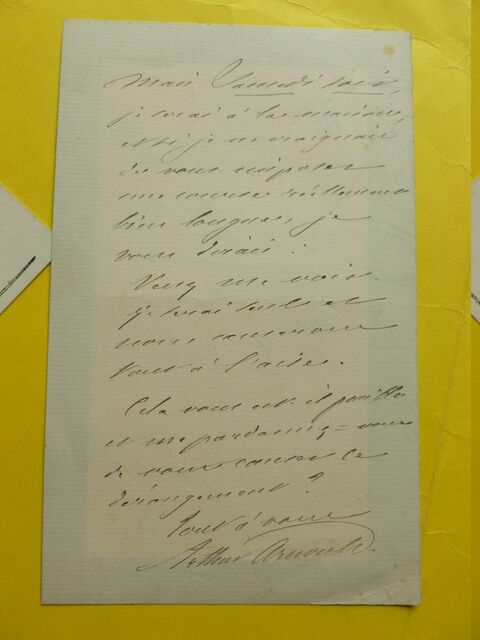 mais Samedi soir,
je serai à la maison,
et si je ne craignais
de vous imposer
une course réellement
bien longue, je
vous dirais :
Venez me voir.
je serai seule et
nous causerons
tout à l'aise.
Cela vous est-il possible
et me pardonnez-vous
de vous causer ce
dérangement ?
Tout à vous
Arthur Arnould.